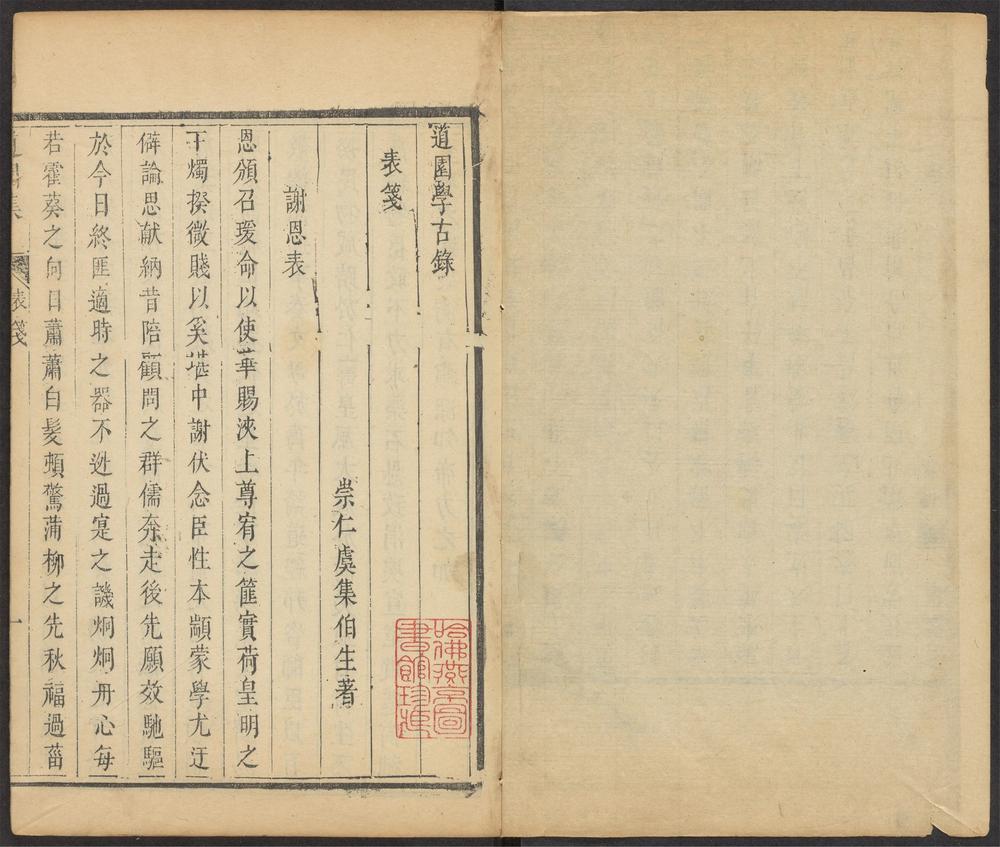 道園學古錄
表箋
崇仁虞集伯生著
謝恩表
恩頒召瑗命以使華賜浹上尊宥之篚實荷皇明之
下燭揆微賤以奚堪中謝伏念臣性本顓蒙學尤迂
僻論思献納昔陪顧問之群儒奔走後先願效馳驅
於今日終匪適時之器不迯過寔之譏炯炯丹心每
若霍葵之向日蕭蕭白髮頓驚蒲柳之先秋福過菑
道園集
表箋
一
哈佛燕京圖
書館珍藏